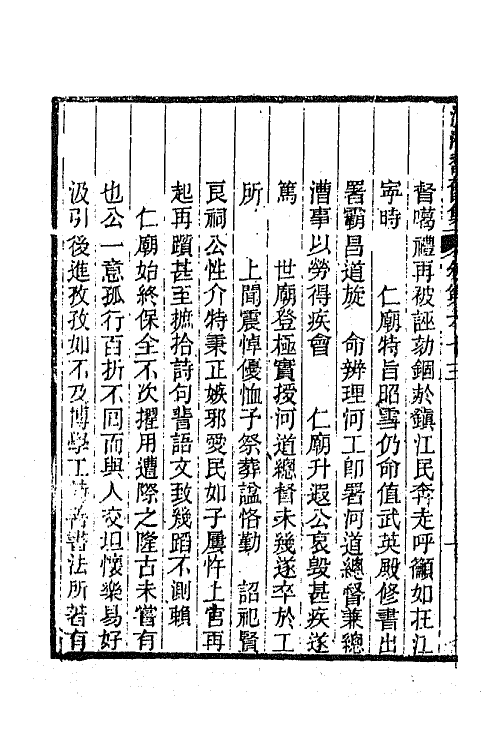 督噶禮再被誣劾錮於鎮江民奔走呼籲如在江
寧時　仁廟特旨昭雪仍命值武英殿修書出
署霸昌道旋　命辦理河工卽署河道總督兼總
漕事以勞得疾會　仁廟升遐公哀毀甚疾遂
篤　世廟登極實授河道總督未幾遂卒於工
所　上聞震悼優恤予祭葬諡恪勤　詔祀賢
良祠公性介特秉正嫉邪愛民如子屢忤上官再
起再躓甚至摭拾詩句蜚語文致幾蹈不測賴
仁廟始終保全不次擢用遭際之隆古未嘗有
也公一意孤行百折不囘而與人交坦懷樂易好
汲引後進孜孜如不及博學工詩善書法所著有